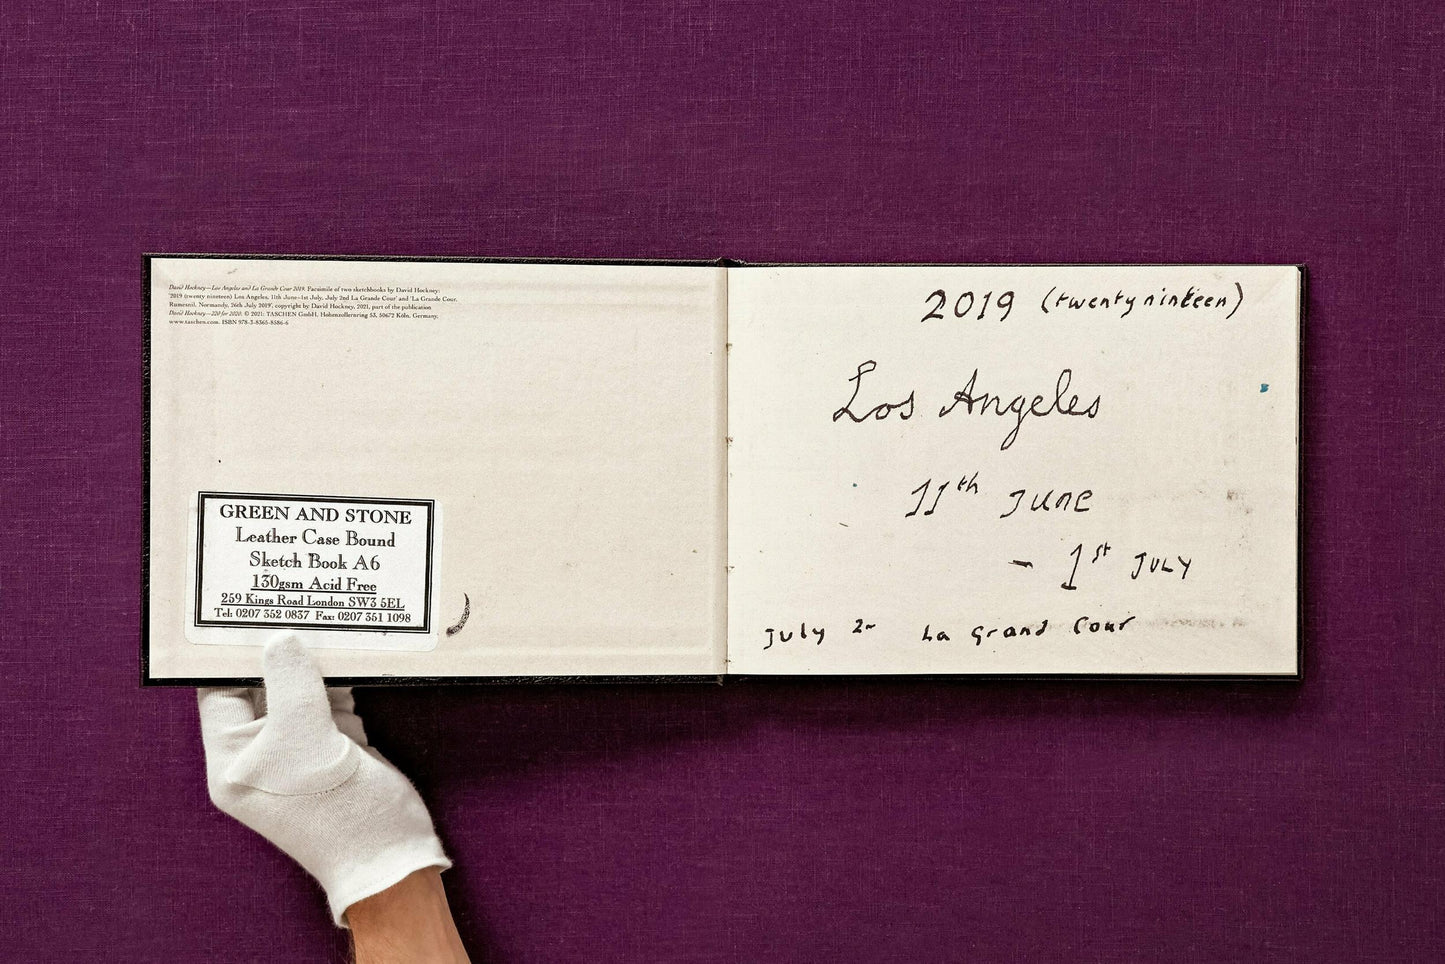 David Hockney—Los Angeles and La Grande Cour 2019. Facsimile of two sketchbooks by David Hockney:
'2019 (twenty nineteen) Los Angeles, 11th June–1st July, July 2nd La Grande Cour' and 'La Grande Cour,
Rumesnil, Normandy, 26th July 2019', copyright by David Hockney, 2021, part of the publication
David Hockney—220 for 2020. © 2021: TASCHEN GmbH, Hohenzollernring 53, 50672 Köln, Germany,
www.taschen.com. ISBN 978-3-8365-8586-6
GREEN AND STONE
Leather Case Bound
Sketch Book A6
130gsm Acid Free
259 Kings Road London SW3 5EL
Tel: 0207 352 0837 Fax: 0207 351 1098
2019 (twenty ninteen)
Los Angeles
11th JUNE
- 1st JULY
July 2n La Grand Cour